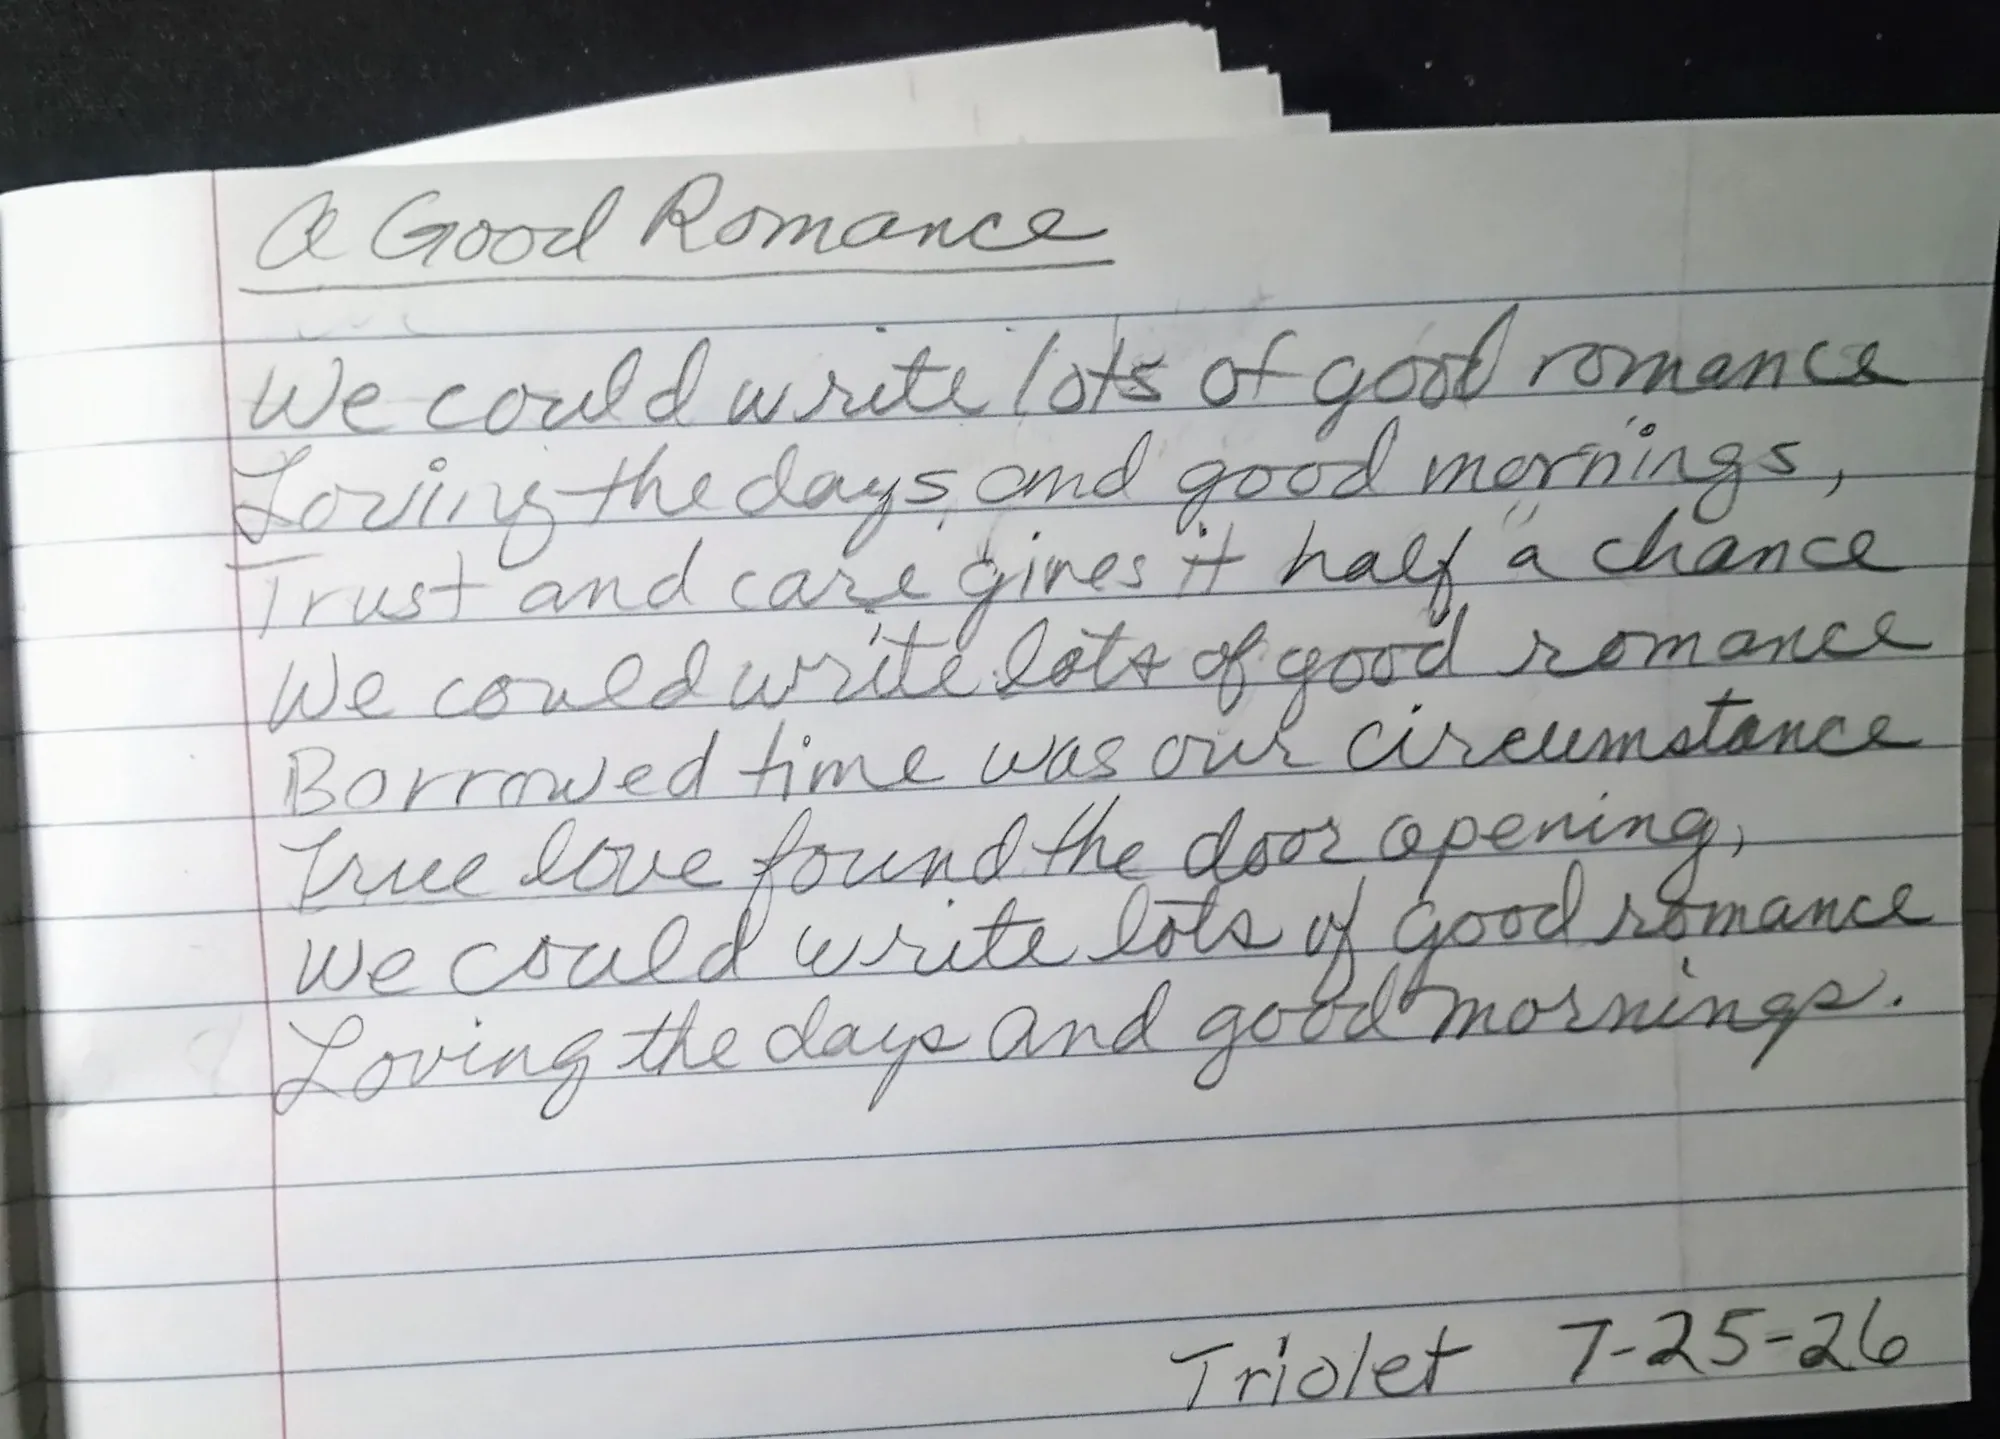 A Good Romance
We could write lots of good romance
Loving the days, and good mornings,
Trust and care gives it half a chance
We could write lots of good romance
Borrowed time was our circumstance
True love found the door opening,
We could write lots of good romance
Loving the days and good mornings.
Triolet 7-25-26